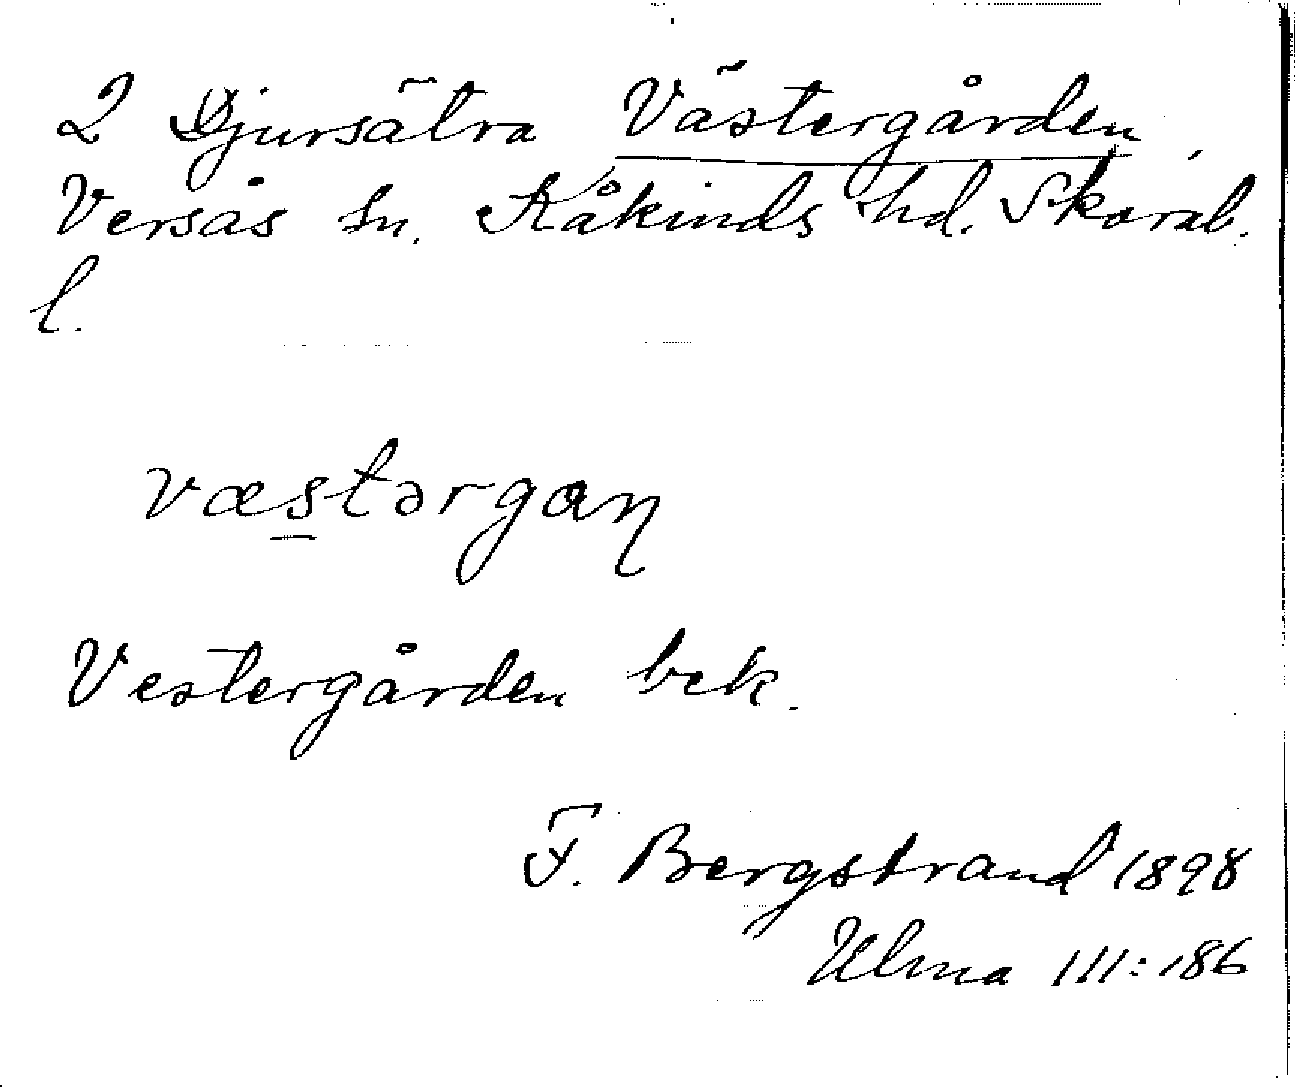 2 Djursätra Västergården,
Versås sn. Kåkinds hd. Skarab.
l.
væstərgaɳ
Vestergården bek.
F. Bergstrand 1898
Ulma 111:186